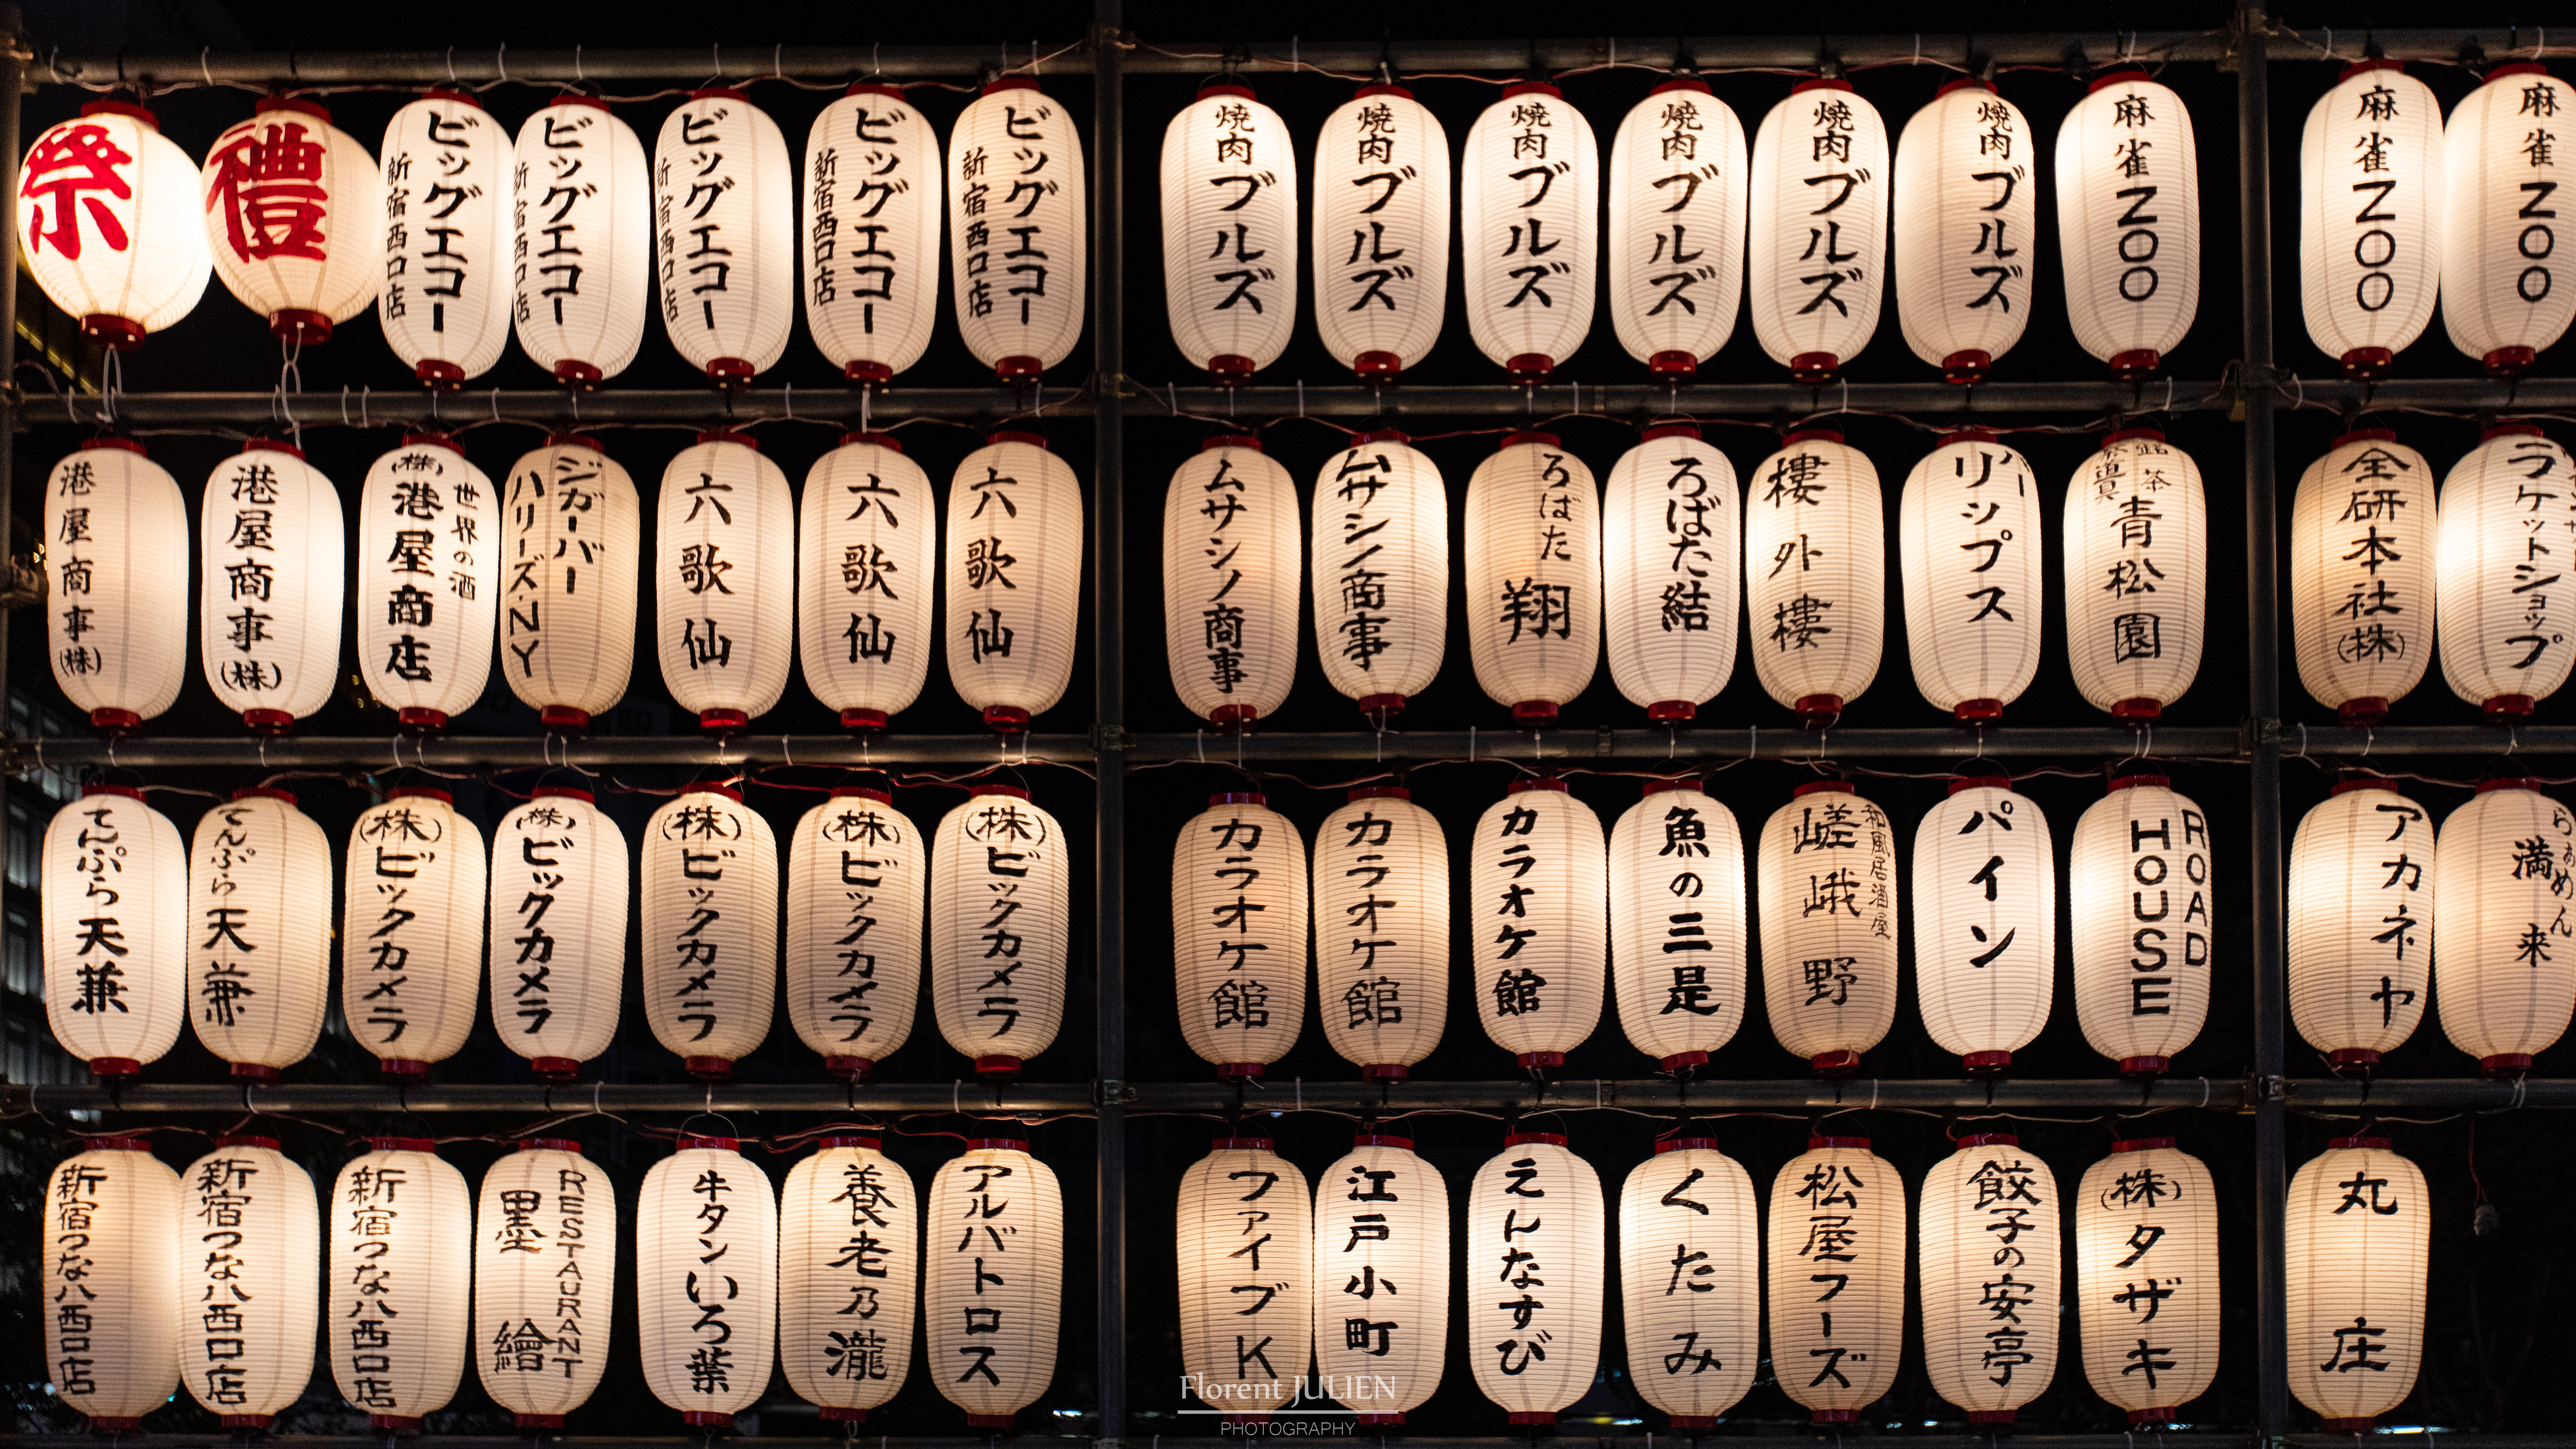 祭
禮
ビッグエコー
新宿西口店
ビッグエコー
新宿西口店
ビッグエコー
新宿西口店
ビッグエコー
新宿西口店
ビッグエコー
新宿西口店
焼肉ブルズ
焼肉ブルズ
焼肉ブルズ
焼肉ブルズ
焼肉ブルズ
焼肉ブルズ
麻雀ZOO
麻雀ZOO
麻雀ZOO
港屋商事(株)
港屋商事(株)
世界の酒
(株)港屋商店
ジガーバー
ハリーズ・NY
六歌仙
六歌仙
六歌仙
ムサシノ商事
ムサシノ商事
ろばた翔
ろばた結
樓外樓
バー
リップス
銘茶
茶道具
青松園
全研本社(株)
ラケットショップ
てんぷら天兼
てんぷら天兼
(株)ビックカメラ
(株)ビックカメラ
(株)ビックカメラ
(株)ビックカメラ
(株)ビックカメラ
カラオケ館
カラオケ館
カラオケ館
魚の三是
和風居酒屋
嵯峨野
パイン
ROAD
HOUSE
アカネヤ
らぁめん
満来
新宿つな八西口店
新宿つな八西口店
新宿つな八西口店
RESTAURANT
墨繪
牛タンいろ葉
養老乃瀧
アルバトロス
ファイブK
江戸小町
えんなすび
くたみ
松屋フーズ
餃子の安亭
(株)タザキ
丸庄
Florent JULIEN
PHOTOGRAPHY